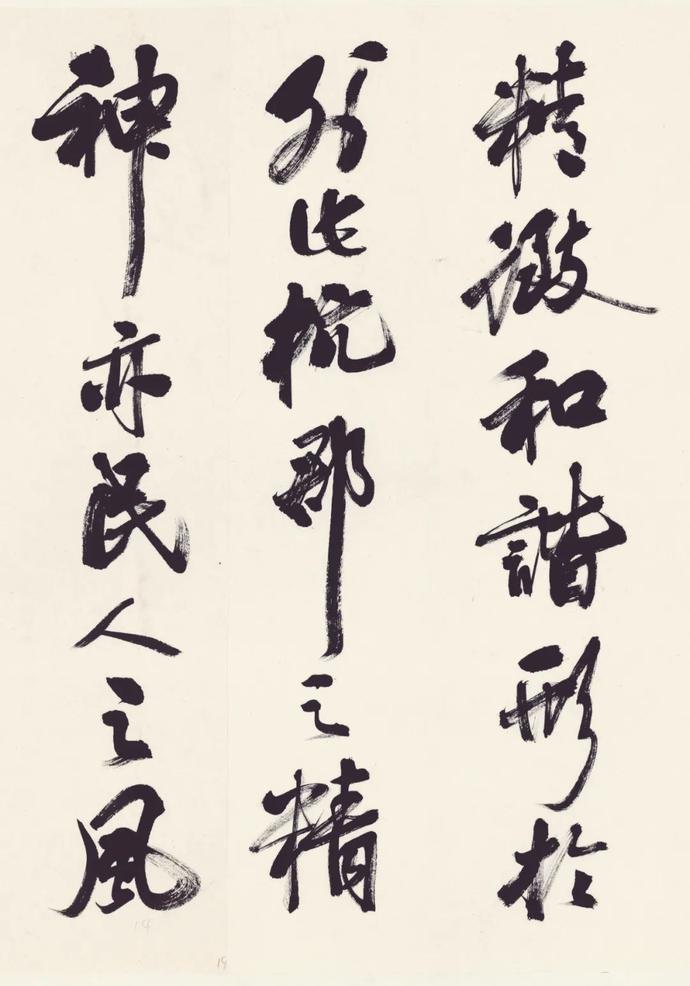 精緻和諧形於
外此杭郡之精
神亦民人之風
14
19